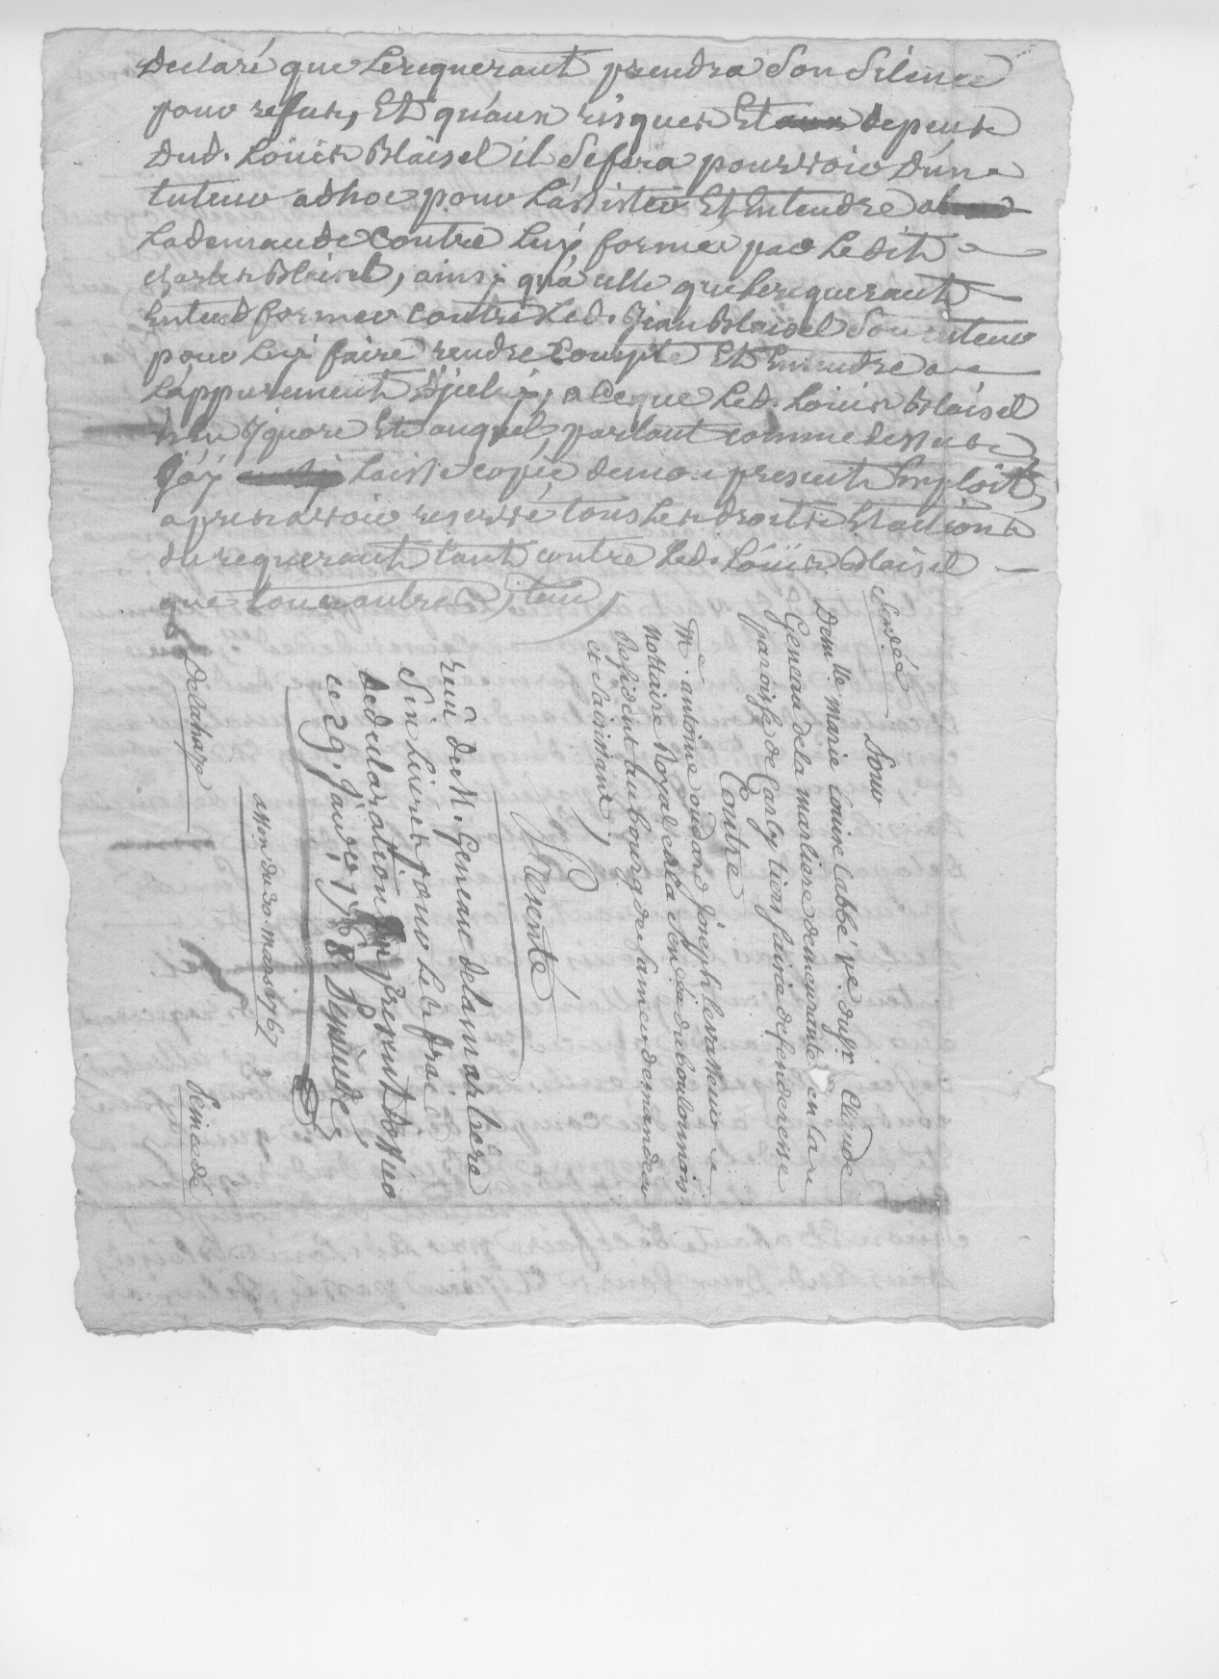 declaré que lerequerant prendra Son Silence
pour refus, Et qu'aux risques Et aux depens
dud. Loüis Blaisel il Sefera pourvoir d'un
tuteur adhoc pour L'assister Et Entendre a
Lademande Contre Luy formée par Ledit
charles Blaisel, ainsi qu'a celle que lerequerant
Entend former Contre Led. Jean Blaisel Son tuteur
pour Luy faire rendre Compte Et Entendre a
L'appurement d'jceluy, a Ceque Led. Louis Blaisel
n'en jgnore Et auquel parlant comme dessus
J'ay Laissé copie demon present Exploit,
apres avoir reservé tous Les droits Et actions
du requerant tant contre Led. Loüis Blaisel
que tous autres,
Senéée
Pour
Dem.lle marie Louise Cabbé v.e du s.r Claude
Geneau de la marliere demeurante en la
paroisse de Carly tiers saisie defenderesse
Contre
M.e antoine oudard Joseph levasseur
Nottaire Royal en la Sen.ée du boulonnois
Resident au bourg de Samer demandeur
et saisissant,
Presenté
receu de M. Geneau delamarliere
Six Livres pour Les frais
de declaration
ce 29. Janv.er 1768
Delahaye
ass.on du 30. mars 1767